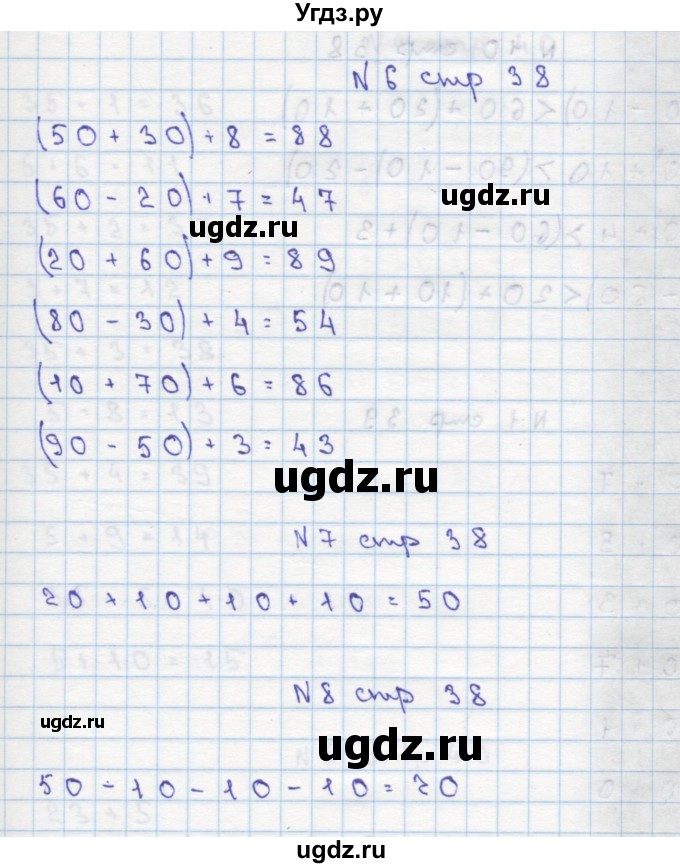 Угдз.ру
N 6 стр 38
(50 + 30) + 8 = 88
(60 - 20) + 7 = 47
ugdz.ru
ugdz.ru
(20 + 60) + 9 = 89
(80 - 30) + 4 = 54
(10 + 70) + 6 = 86
(90 - 50) + 3 = 43
ugdz.ru
N 7 стр 38
20 + 10 + 10 + 10 = 50
N 8 стр 38
ugdz.ru
ugdz.ru
50 - 10 - 10 - 10 = 20
ugdz.ru